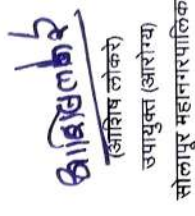 आशिष लोकरे
(आशिष लोकरे)
उपायुक्त (आरोग्य)
सोलापूर महानगरपालिका